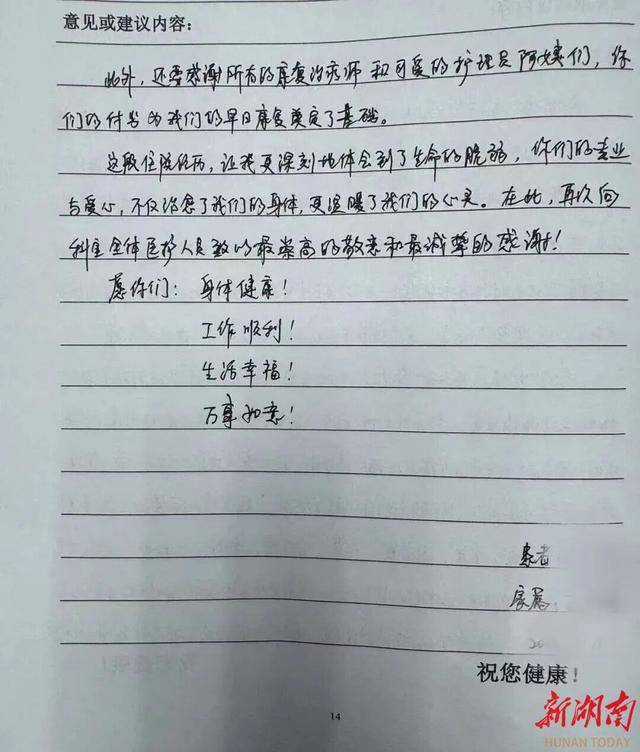 意见或建议内容:
此外，还要感谢所有的康复治疗师和可爱的护理员阿姨们，你
们的付出为我们的早日康复奠定了基础。
这段住院经历，让我更深刻地体会到了生命的脆弱，你们的专业
与爱心，不仅治愈了我们的身体，更温暖了我们的心灵。在此，再次向
科室全体医护人员致以最崇高的敬意和最诚挚的感谢！
愿你们：身体健康！
工作顺利！
生活幸福！
万事如意！
患者
家属
20
祝您健康！
14
新湖南
HUNAN TODAY